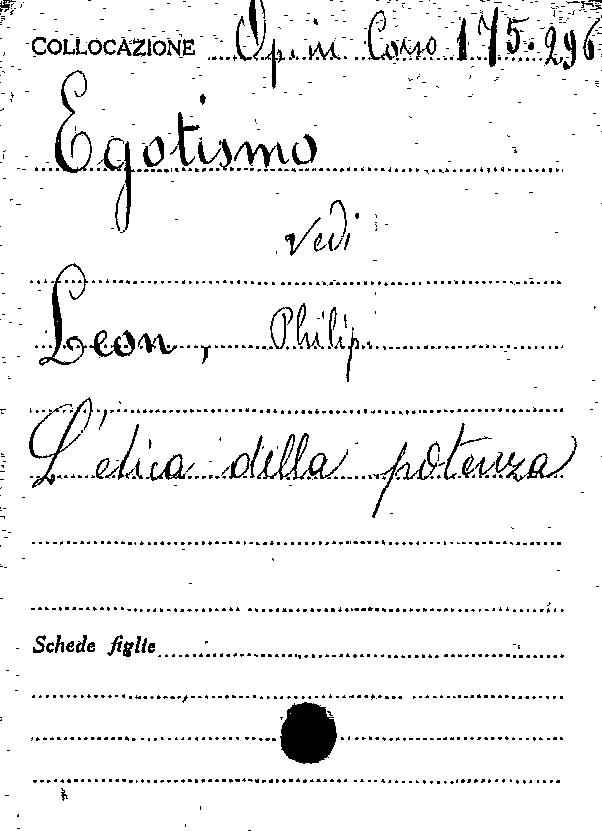 COLLOCAZIONE Op. in Corso 175.296
Egotismo
vedi
Leon, Philip.
L'etica della potenza
Schede figlie